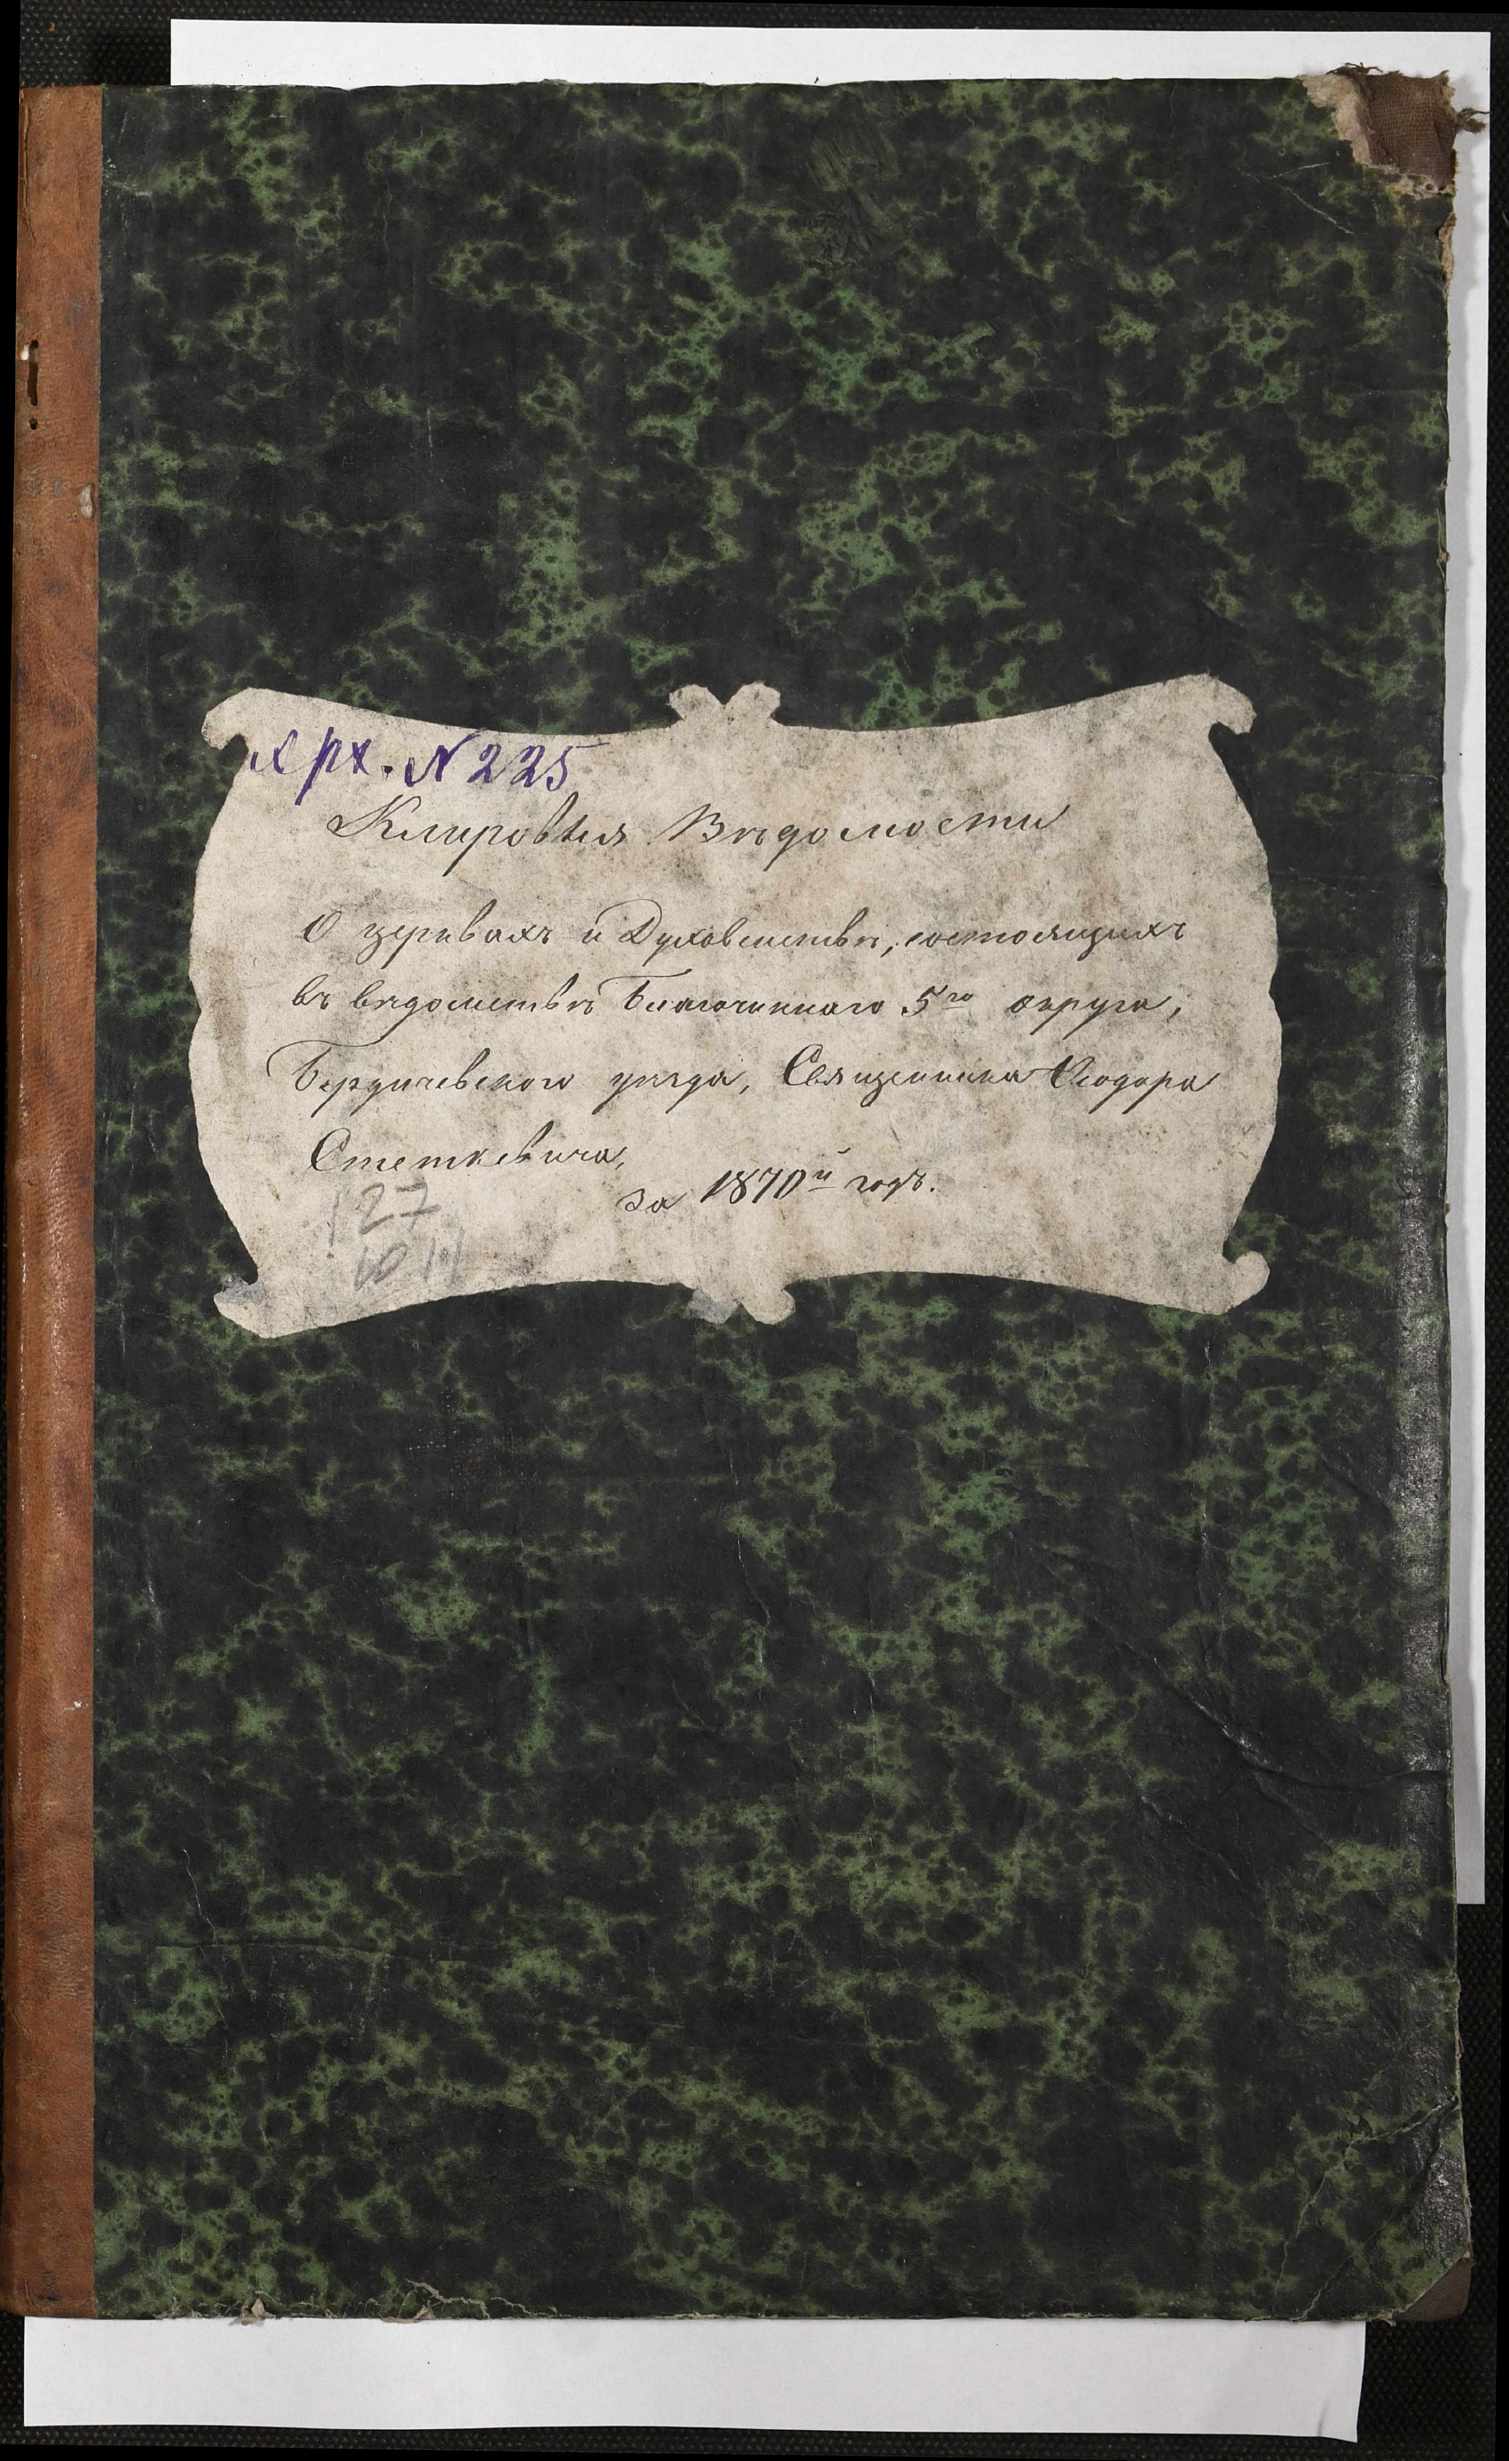 арх. N 225
Клировыя Вѣдомости
О церквахъ и Духовенствѣ, состоящихъ
въ вѣдомствѣ Благочиннаго 5го округа,
Бердичевскаго уѣзда, Священника Ѳеодора
Стеткевича,
за 1870й годъ.
127